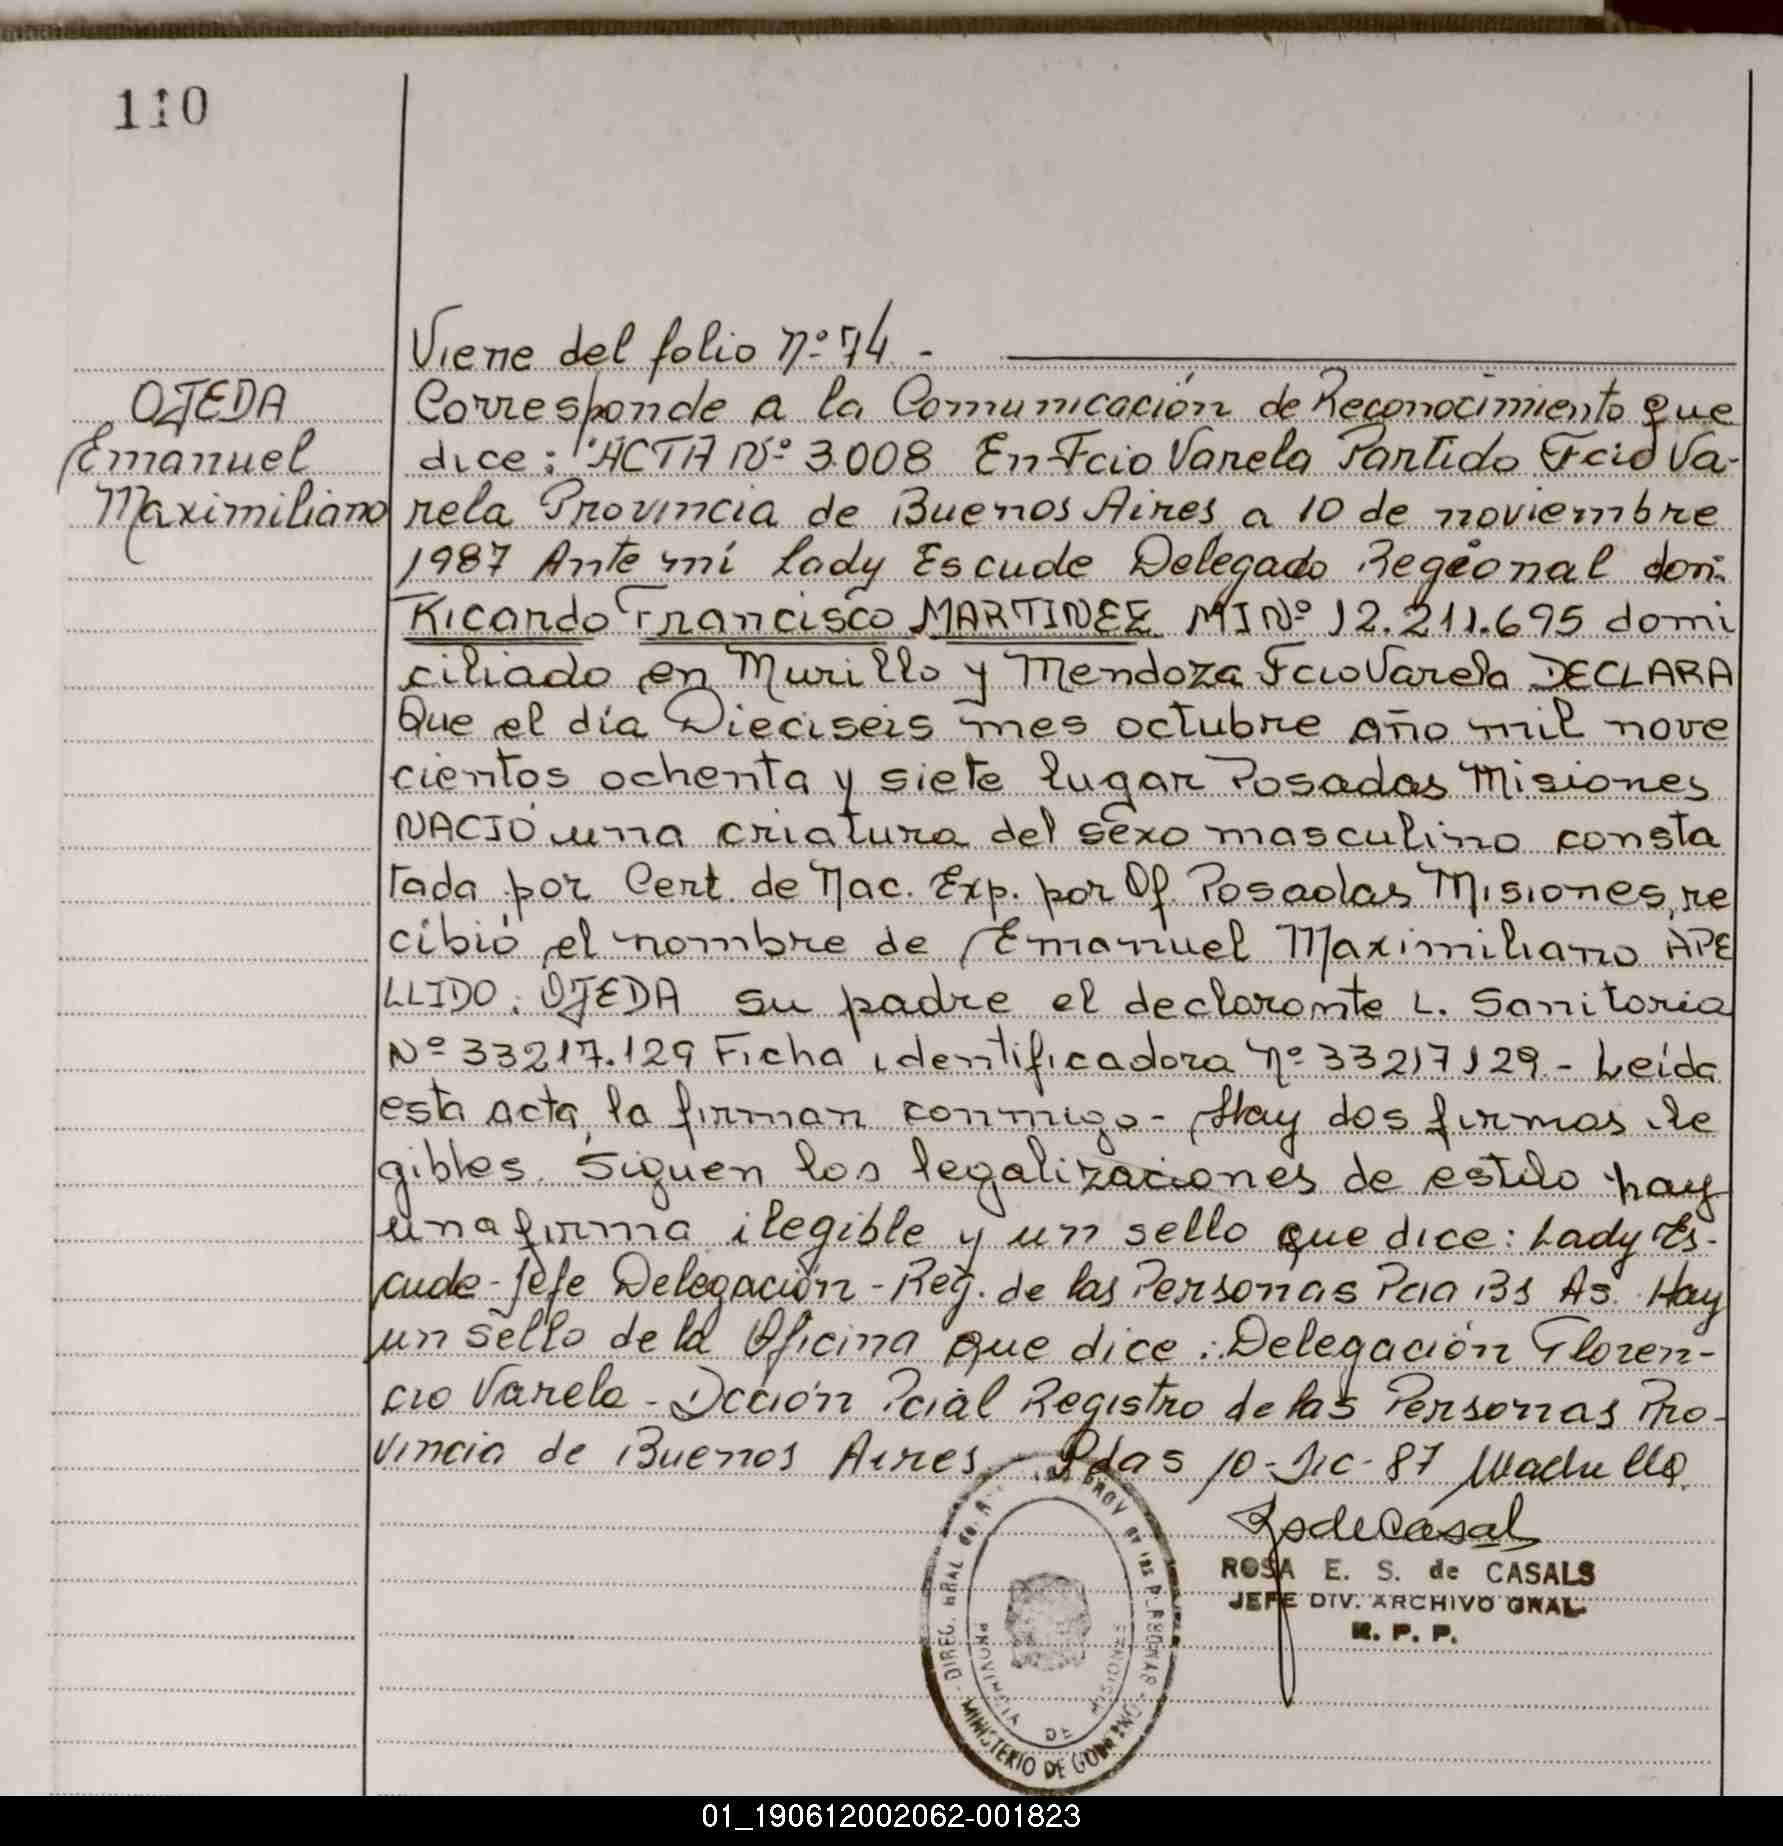 110
Viene del folio Nº 74 -
OJEDA
Emanuel
Maximiliano
Corresponde a la Comunicación de Reconocimiento que
dice: "ACTA Nº 3.008 En Fcio Varela Partido Fcio Va-
rela Provincia de Buenos Aires a 10 de noviembre
1987 Ante mí Lady Escude Delegado Regional don:
Ricardo Francisco MARTINEZ MI Nº 12.211.695 domi
ciliado en Murillo y Mendoza Fcio Varela DECLARA
Que el día Dieciseis mes octubre año mil nove
cientos ochenta y siete lugar Posadas Misiones
NACIÓ una criatura del sexo masculino consta
tada por Cert. de Nac. Exp. por Of. Posadas Misiones, re
cibió el nombre de Emanuel Maximiliano APE
LLIDO: OJEDA su padre el declarante L. Sanitaria
Nº 33217.129 Ficha identificadora Nº 33217129 - Leída
esta acta, la firman conmigo - Hay dos firmas ile
gibles. Siguen las legalizaciones de estilo hay
una firma ilegible y un sello que dice: Lady Es-
cude - Jefe Delegación - Reg. de las Personas Pcia Bs As. Hay
un sello de la Oficina que dice: Delegación Floren-
cio Varela - Dcción Pcial Registro de las Personas Pro-
vincia de Buenos Aires. Pdas 10 - Dic - 87
ROSA E. S. de CASALS
JEFE DIV. ARCHIVO GRAL.
R. P. P.
DIREC. GRAL
PROV de las PERSONAS
MINISTERIO DE GOBIERNO
PROVINCIA DE MISIONES
01_190612002062-001823